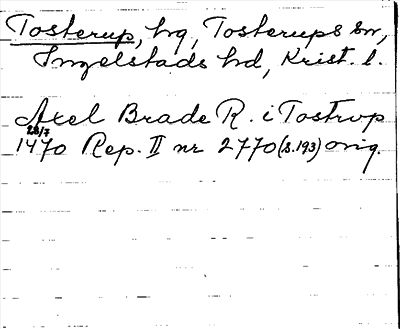 Tosterup, hg, Tosterups sn,
Ingelstads hd, Krist. l.
Axel Brade R. i Tostrvp
28/7
1470 Rep. II nr 2770 (s.193) orig.